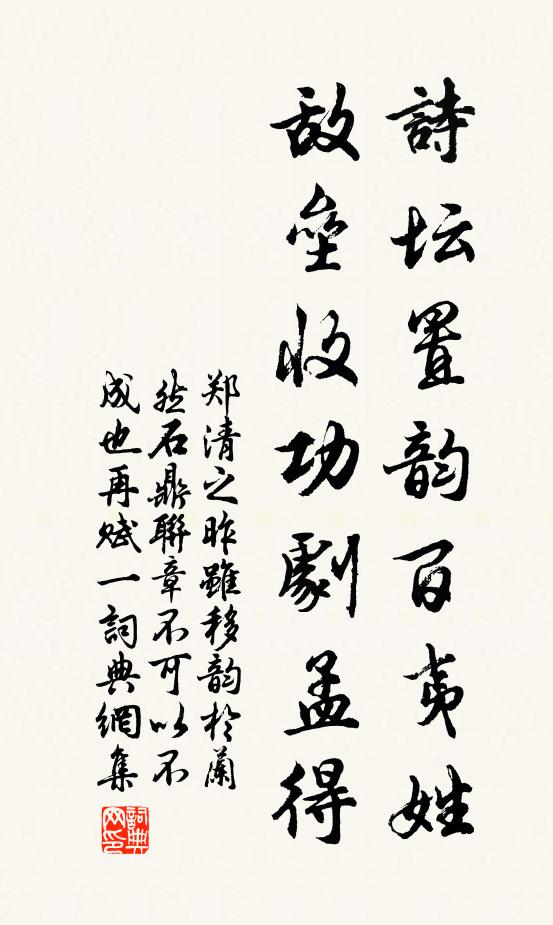 詩坛置韵百夷姓
敌壘收功劇孟得
郑清之昨雖移韵於蘭
然石鼎聯章不可以不
成也再赋一詞典網集
詞典
网印